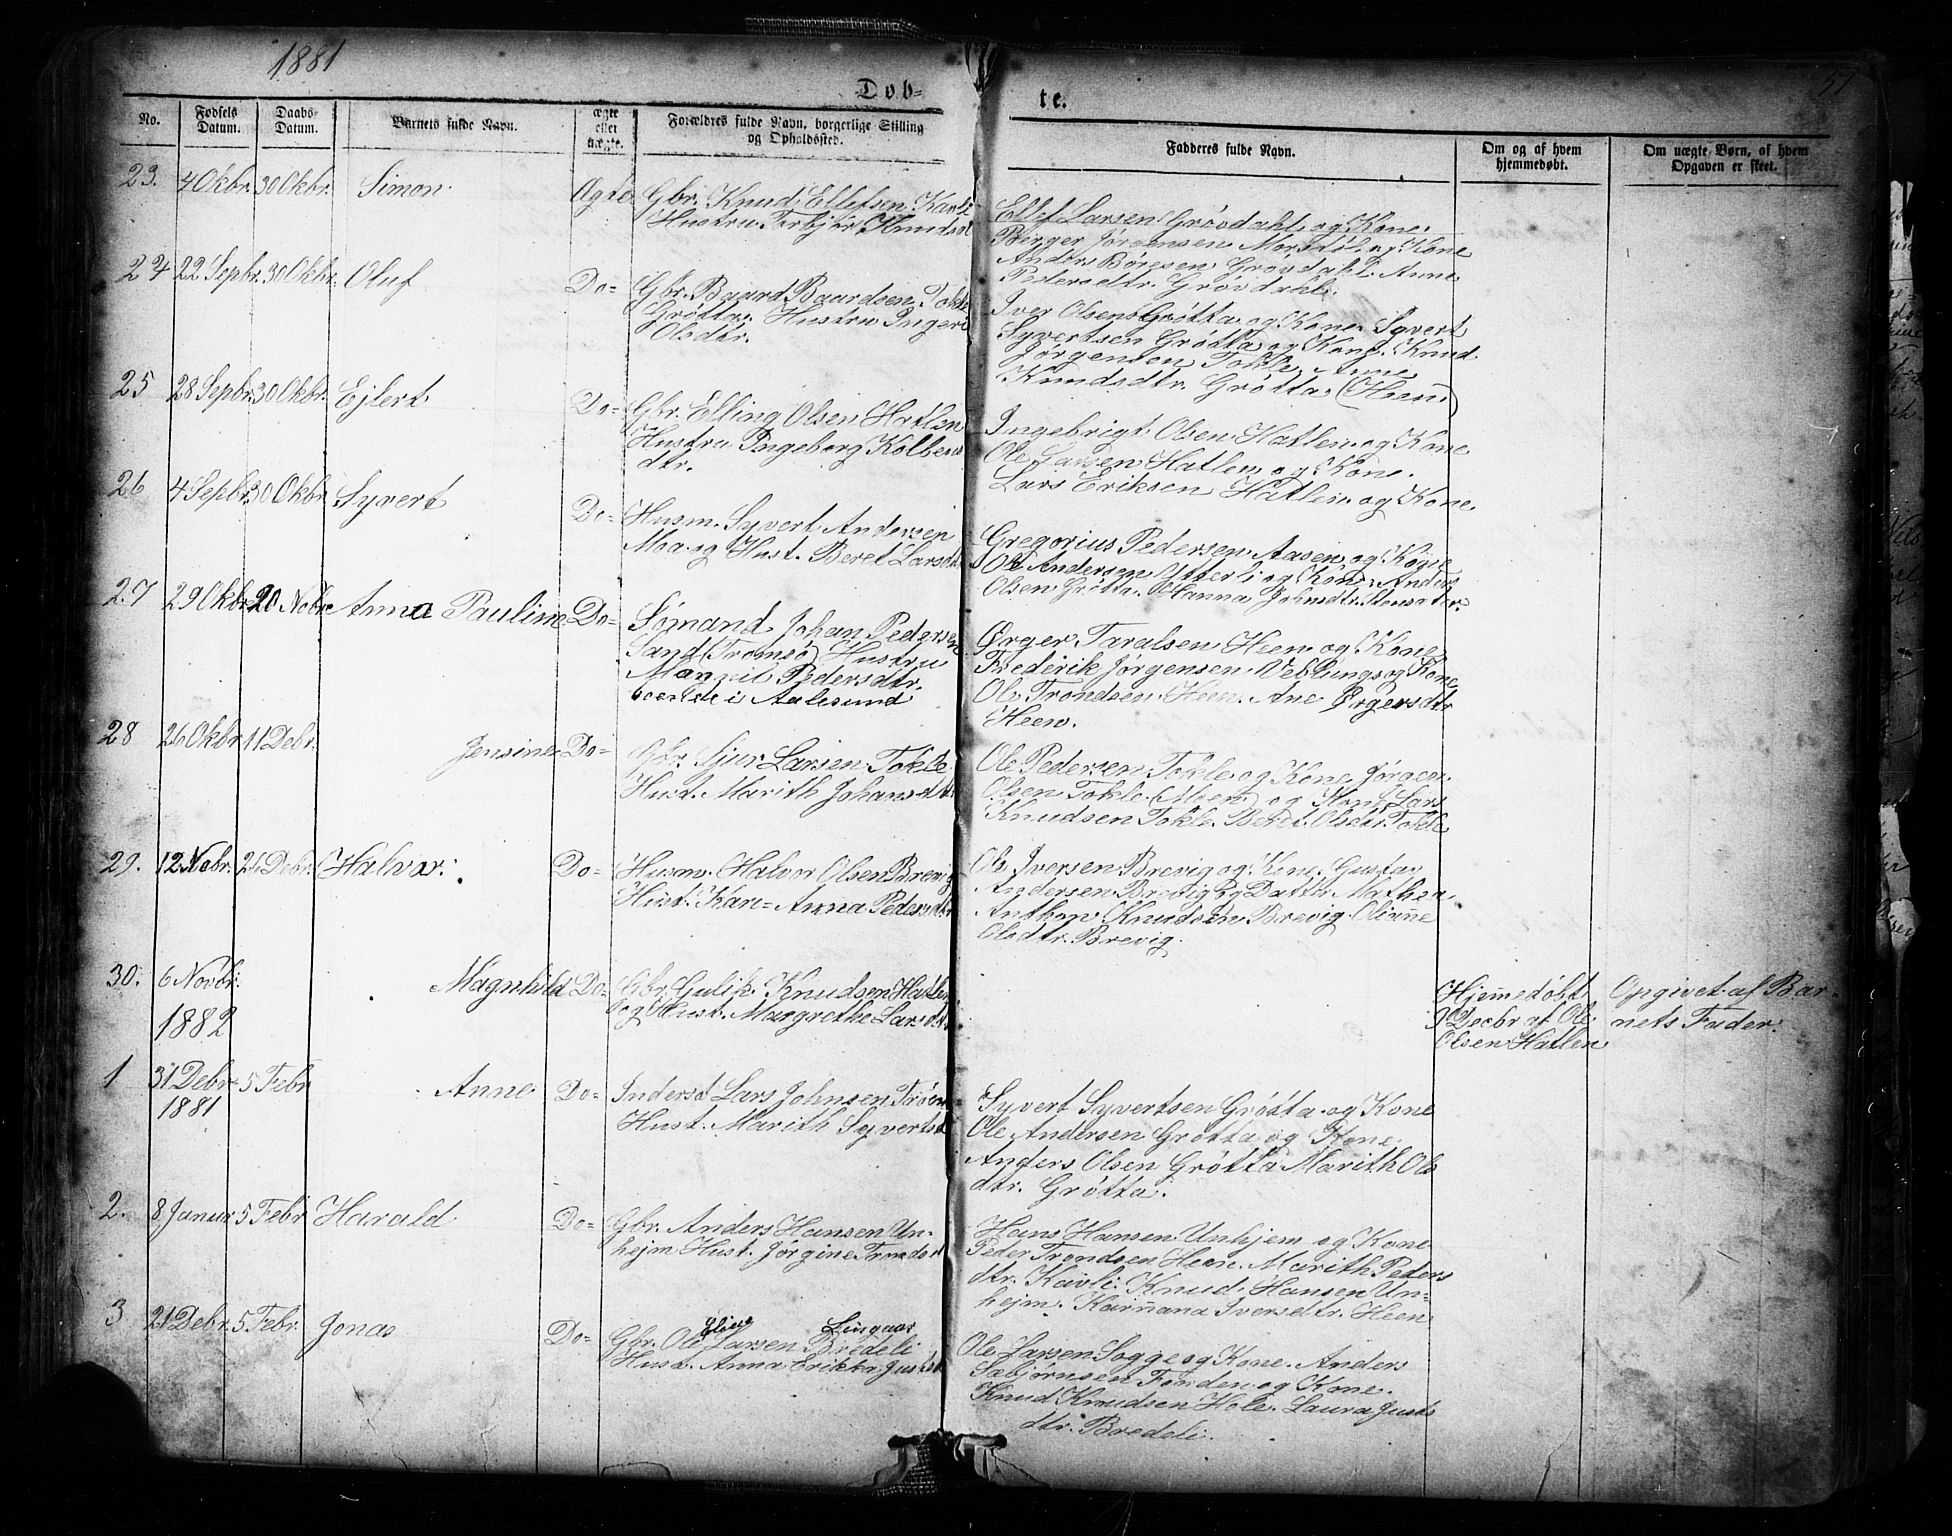 1881
51
Døb=
te.
No.
Fødsels Datum.
Daabs- Datum.
Barnets fulde Navn.
ægte eller uægte.
Forældres fulde Navn, borgerlige Stilling og Opholdssted.
Fadderes fulde Navn.
Om og af hvem hjemmedøbt.
Om uægte Børn, af hvem Opgaven er skeet.
23. 4 Okbr. 30 Okbr. Simon. Ægte Gbr. Knud Ellefsen Kavli
Hustru Torbjør Knudsdt
Ellef Larsen Grøvdahl og Kone.
Birger Jørgensen Morstøl og Kone
Anders Børesen Grøvdahl. Anne
Pedersdtr. Grøvdahl.
24 22 Sepbr. 30 Okbr. Oluf Do= Gbr. Baard Baardsen Tokle
Grøtta. Hustru Ingeri
Olsdtr.
Iver Olsen Grøtta og Kone. Syvert
Syvertsen Grøtta og Kone. Knud
Jørgensen Tokle. Anne
Knudsdtr. Grøtta (Heen)
25 28 Sepbr. 30 Okbr. Ejlert Do= Gbr. Elling Olsen Hatlen
Hustru Ingeborg Kolbens
dtr.
Ingebrigt Olsen Hatlen og Kone
Ole Larsen Hatlen og Kone.
Lars Eriksen Hatlen og Kone.
26 4 Sepbr. 30 Okbr. Syvert Do= Husm. Syvert Andersen
Moa og Hust. Beret Larsdt
Gregorius Pedersen Aasen og Kone
Ole Andersen Ytterli og Kone. Anders
Olsen Grøtta. Hanna Johnsdtr.
27 29 Okbr. 20 Nobr. Anna Pauline Do= Sømand Johan Pedersen
Sand (Tromsø) Hustru
Marrit Pedersdtr.
boende i Aalesund
Ørger Taralsen Heen og Kone
Frederik Jørgensen Veblungs og Kone
Ole Trondsen Heen. Ane Ørgersdtr
Heen.
28 26 Okbr. 11 Debr. Jensine Do= Gbr. Sjur Larsen Tokle
Hust. Marith Johansdt
Ole Pedersen Tokle og Kone. Jørgen
Olsen Tokle (Heen) og Kone. Lars
Knudsen Tokle. Beret Olsdtr. Tokle
29. 12 Nobr. 26 Debr. Halvor. Do= Husm. Halvor Olsen Brevig
Hust. Kari= Anna Pedersdtr
Ole Iversen Brevig og Kone. Gustav
Andersen Brevig og Datter Mathea
Anthon Knudsen Brevig. Oliane
Olsdtr. Brevig.
30. 6 Novbr. Magnhild Do= Gbr. Gulik Knudsen Hatlen
og Hust. Margrethe Larsdt
Hjemedøbt
9 Decbr af Ole
Olsen Hatlen
Opgivet af Bar-
nets Fader.
1882
1 31 Debr 1881 5 Febr Anne Do= Inderst Lars Johnsen Trøen
Hust. Marith Syvertsd
Syvert Syvertsen Grøtta og Kone
Ole Andersen Grøtta og Kone.
Anders Olsen Grøtta Marith Ols
dtr. Grøtta.
2. 8 Januar 5 Febr Harald Do= Gbr. Anders Hansen Un-
hejm Hust. Jørgine Trondsd
Hans Hansen Unhjem og Kone
Peder Trondsen Heen. Marith Peders
dtr. Kavli. Knud Hansen Un=
hejm. Karinana Iversdtr. Heen
3 21 Debr. 5 Febr. Jonas Do=
Gbr. Ole Larsen Bredeli
Hust. Anna Erikka Justsd
Ole Larsen Sogge og Kone. Anders
Sæbjørnsen Fonden og Kone.
Knud Knudsen Hole. Laura Justs
dtr. Bredeli.